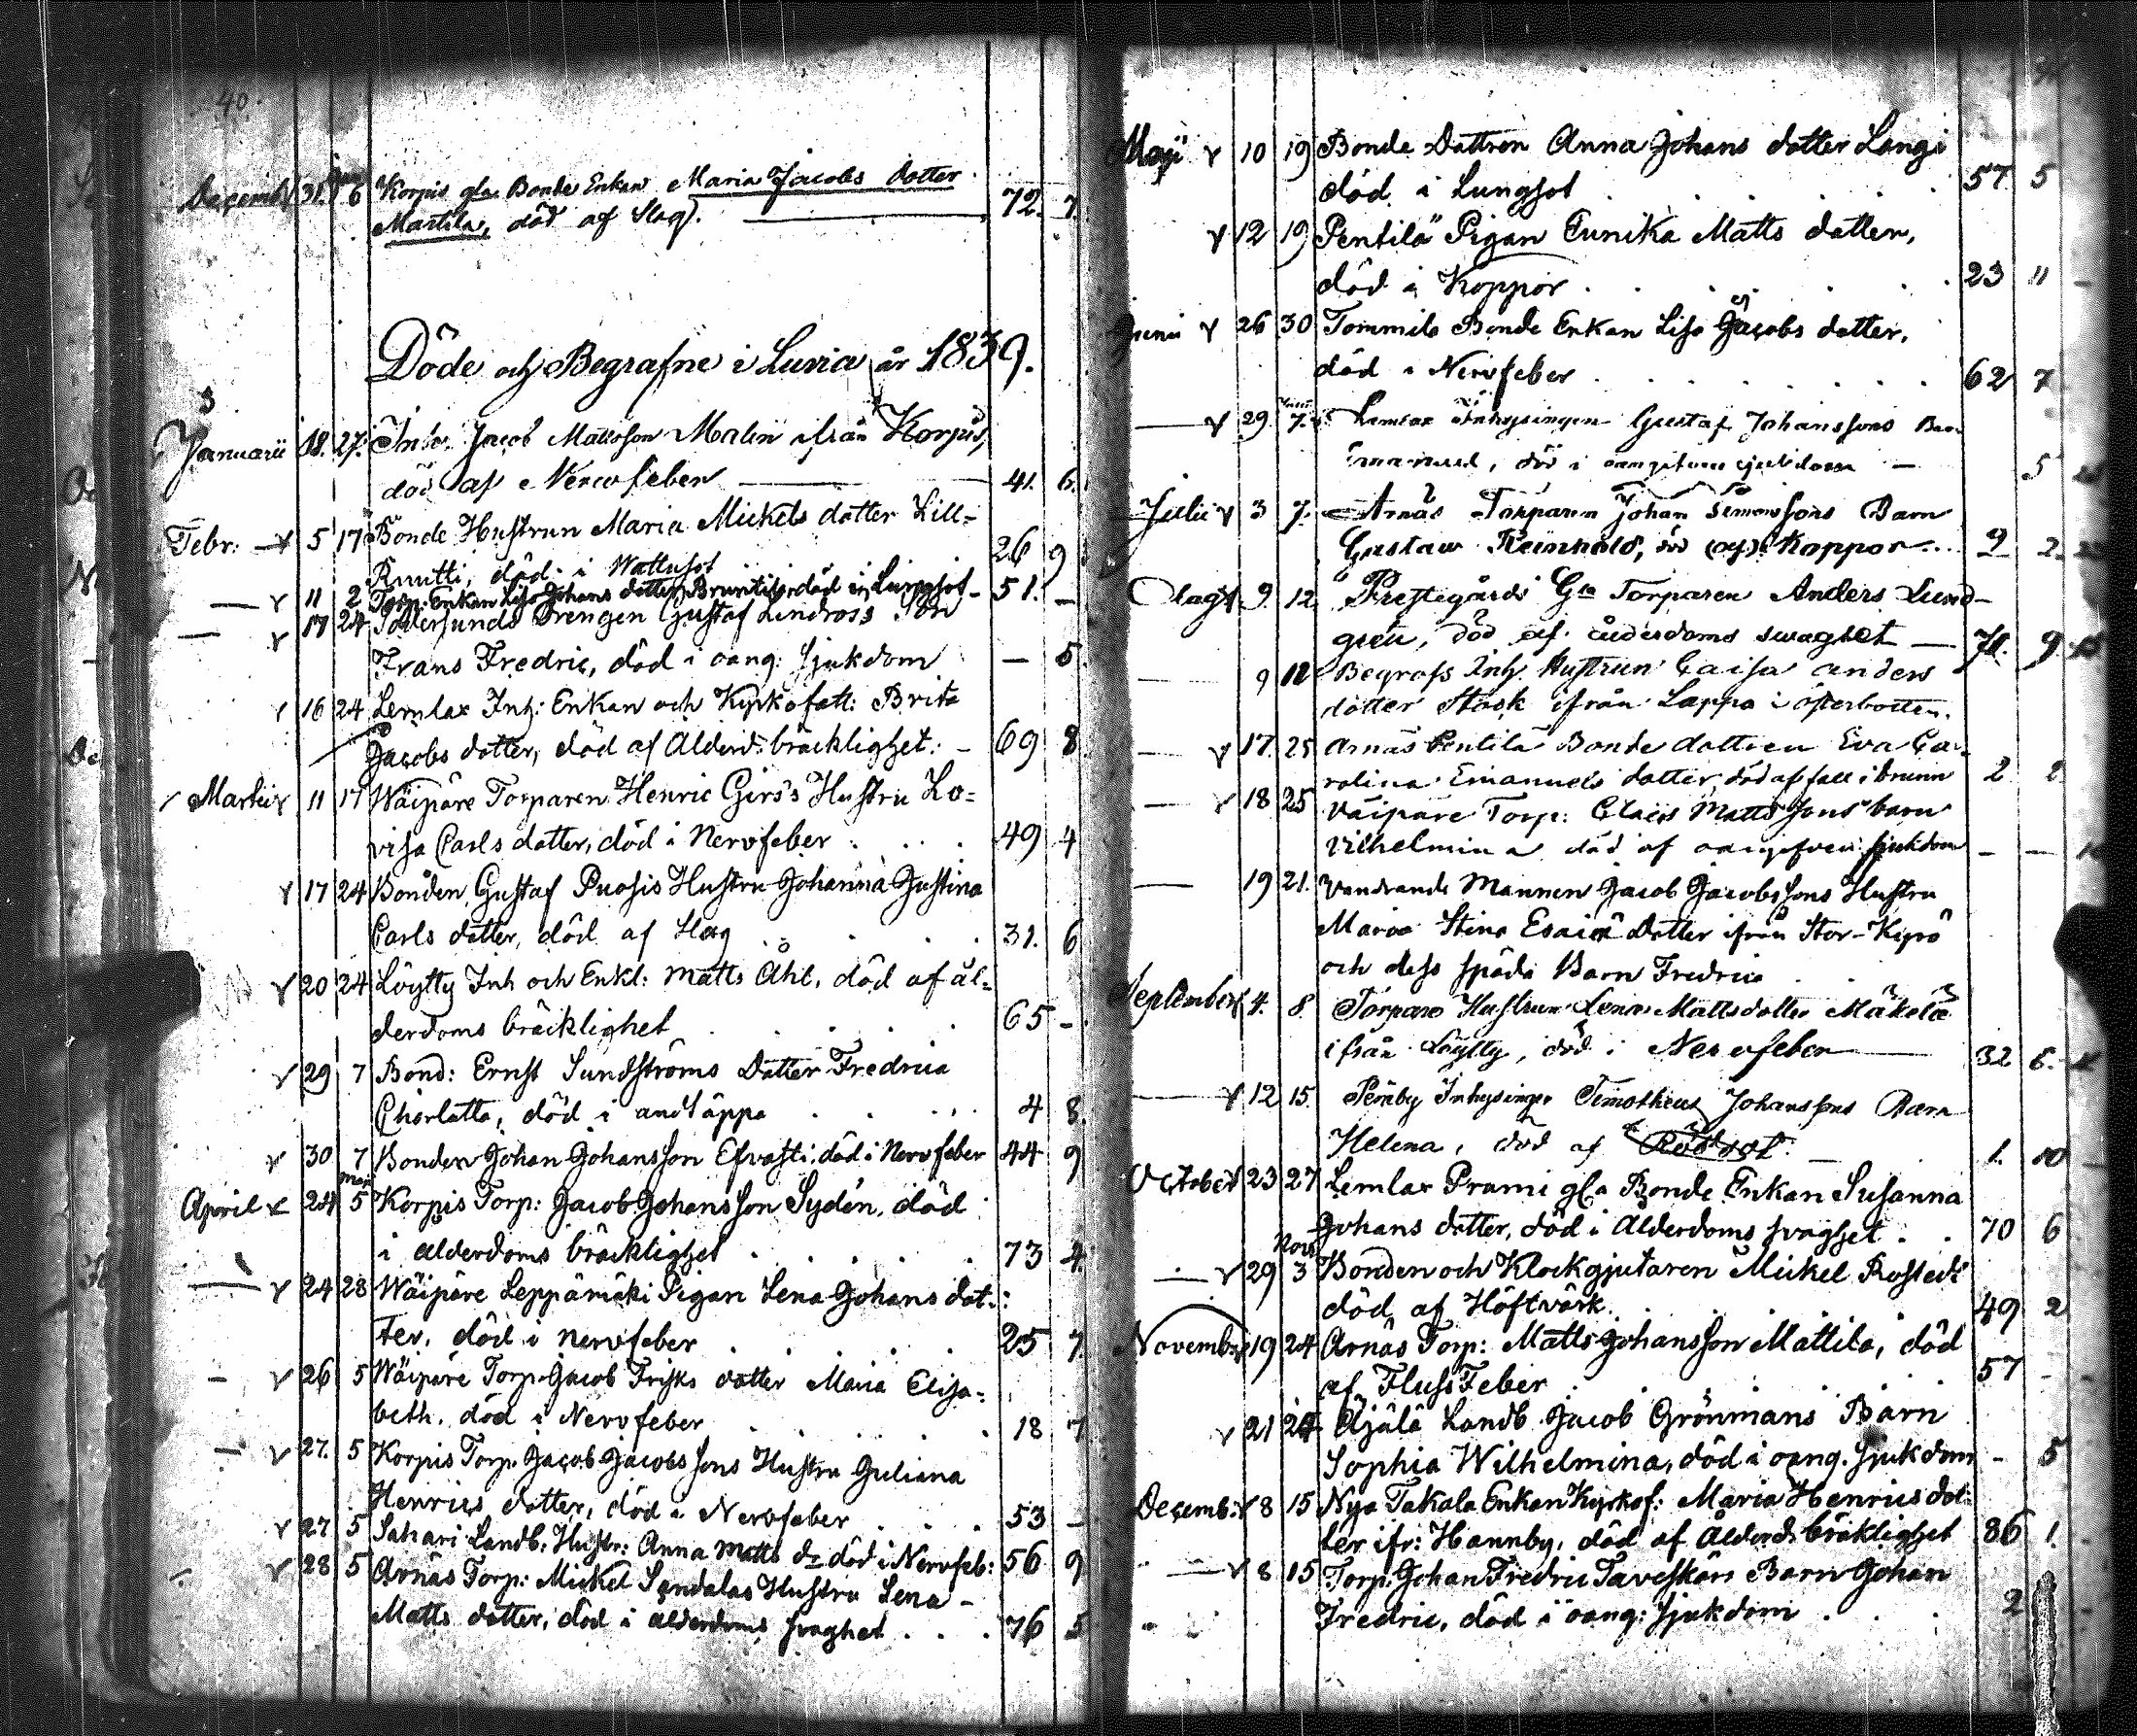 40.
Decemb: 31. Jan 6 Korpis gla Bonde Enkan Maria Jacobs dotter
Martila, död af Slag. 72. 7.
Döde och Begrafne i Luvia år 1839.
Januarii 18. 27. Inh. Jacob Mattsson Malin ifrån Korpis,
död af Nervfeber 41. 6.
Febr: 5 17 Bonde Hustrun Maria Mickels dotter Lill-
Ruutti, död i Wattusot 26 9
11 2 Torp. Enkan Lisa Johans dotter död i Lungsot 51. -
17 24 Drengen Gustaf Lindross Son
Frans Fredric, död i oang: sjukdom - 5.
16 24 Lemlax Inh: Enkan och Kyrkofatt: Brita
Jacobs dotter, död af Ålderd: bräcklighet. 69 8
Martii 11 17 Wäipäre Torparen Henric Girs's Hustru Lo-
visa Carls dotter, död i Nervfeber 49 4
17 24 Bonden Gustaf Puosis Hustru Johanna Justina
Carls dotter, död af 31. 6
20 24 Löytty Inh och Enkl: Matts Åhl, död af ål-
derdoms bräcklighet 65 -
29 7 Bond: Ernst Sundströms Dotter Fredrica
Charlotta, död i andtäppa 4 8.
30 7 Bonden Johan Johansson Efvasti, död i Nervfeber 44 9
April 24 Maj 5 Korpis Torp: Jacob Johansson Sydén, död
i ålderdoms bräcklighet 73 4.
24 28 Wäipäre Leppämäki Pigan Lena Johans dot-
ter, död i nervfeber 25 7.
26 5 Wäipäre Torp. Jacob Frisks dotter Maria Elisa-
beth, död i Nervfeber 18 7
27. 5 Korpis Torp. Jacob Jacobssons Hustru Juliana
Henrics dotter, död i Nervfeber 53 -
27 5 Sahari Landb: Hustr: Anna Matts dr död i Nervfeb: 56 9
28 5 Arnäs Torp: Mickel Sandalas Hustru Lena
Matts dotter, död i ålderdoms svaghet 76 5
Maji 10 19 Bonde Dottren Anna Johans dotter Langi
död i Lungsot 57 5
12 19 Pentilä Pigan Eunika Matts dotter,
död i Koppor 23 11 -
Junii 26 30 Tommila Bonde Enkan Lisa Jacobs dotter,
död i Nervfeber 62 7
29 7. Lemlax Inhysingen Gustaf Johanssons Barn
Emanuel, död i oangifven sjukdom - 5
Julii 3 7. Arnäs Torparen Johan Simonssons Barn
Gustaw Reinhold, död (af) Koppor 9 2
9. 12 Prestegårds Gla Torparen Anders Lund-
gren, död af ålderdoms swaghet 9
9 12 Begrofs Inh. Hustrun Caisa Anders
dotter Stask ifrån Lappo i österbotten.
17. 25 Arnäs Pentilä Bonde dottren Eva Ca-
rolina Emanuels dotter, död af fall i brunn 2
18 25 Väipäre Torp: Claës Mattssons barn
Vilhelmina död af oangifven sjukdom - -
19 21. Vandrande Mannen Jacob Jacobssons Hustru
Maria Stina Esaiæ Dotter ifrån Stor-Kyrö
och dess späda Barn Fredrica
September 4. 8 Torpare Hustrun Lena Mattsdotter Mäkelä
ifrån Löytty, död i Nervfeber 32 6.
12 15. Penby Inhysingen Timotheus Johanssons Barn
Helena, död af Rödsot 1. 10 -
October 23 27 Lemlax Prami gla Bonde Enkan Susanna
Johans dotter, död i Ålderdoms svaghet 70 6
29 Nov. 3 Bonden och Klockgjutaren Mickel Rostedt
död af Höftvärk 49 2
November 19 24 Arnäs Torp: Matts Johansson Mattila, död
af FlussFeber 57 -
21 24 Ajälä Landb. Jacob Grönmans Barn
Sophia Wilhelmina, död i oang. sjukdom - 5
Decemb: 8 15 Nya Takala Enkan Kyrkof: Maria Henrics dot-
ter ifr: Hannby, död af Ålderds bräklighet 86 1.
8 15 Torp. Johan Fredric Barn Johan
Fredric, död i oang: sjukdom 2 -